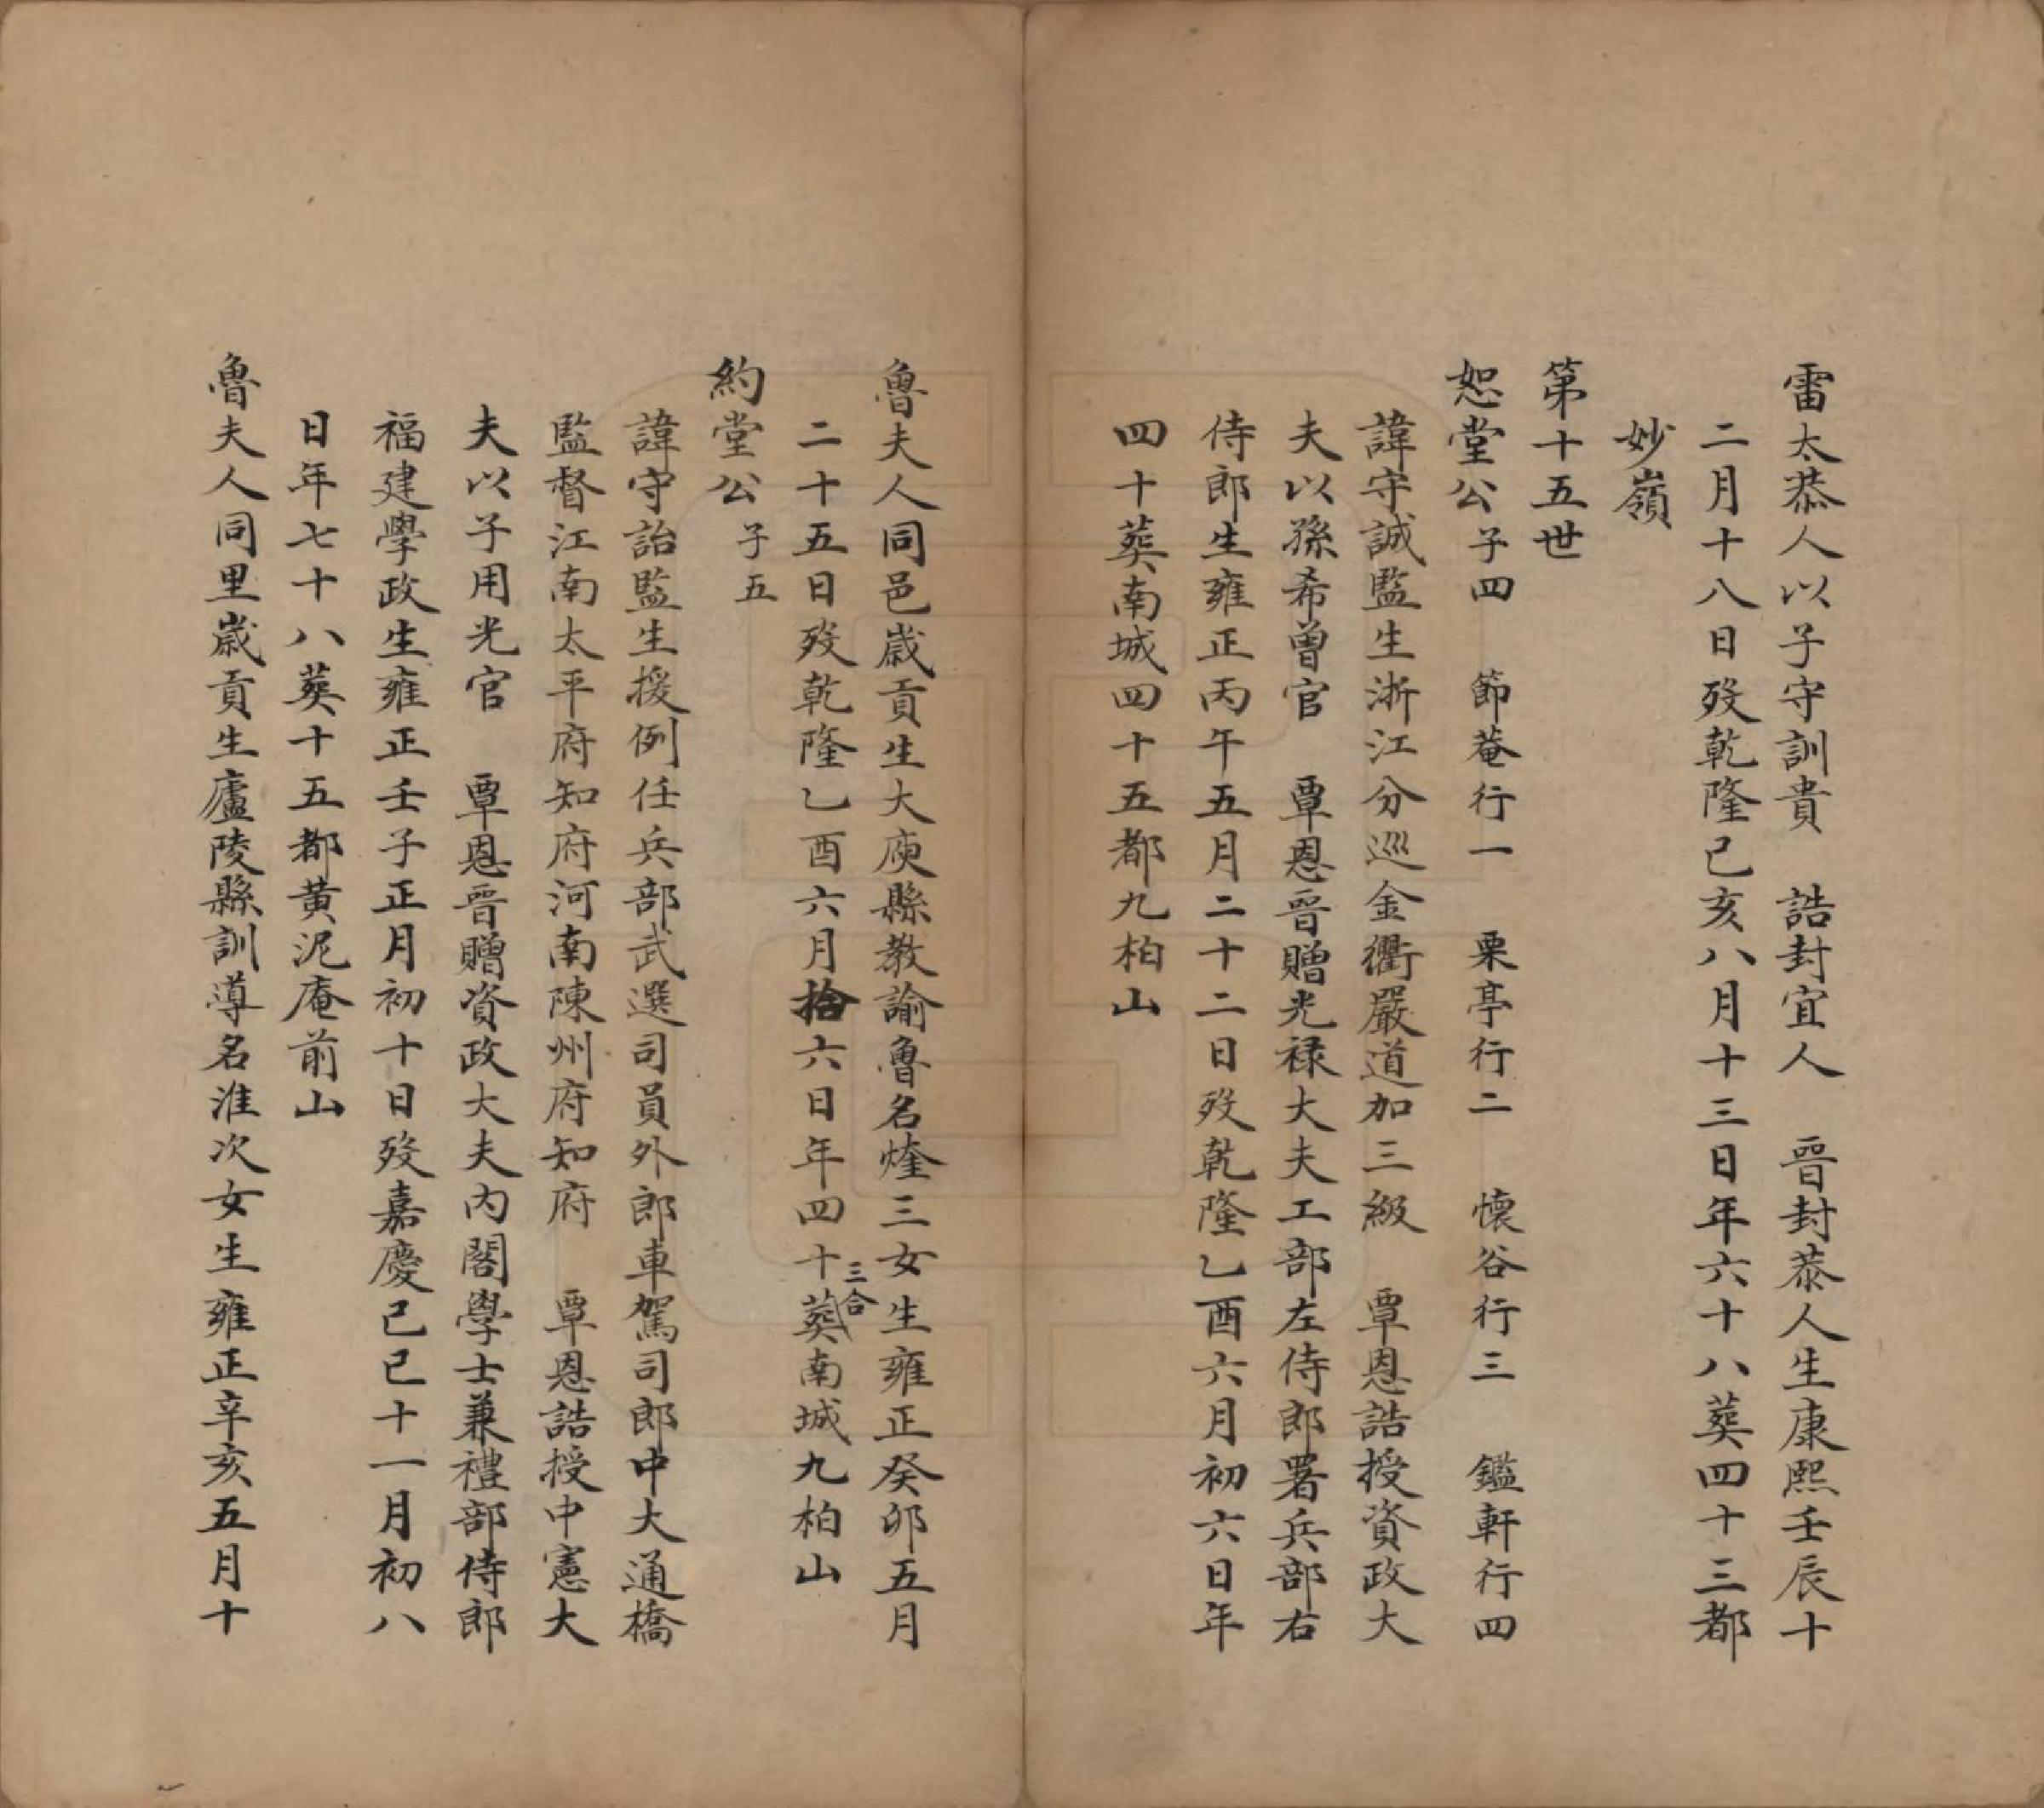 雷太恭人以子守訓貴　誥封宜人　晉封恭人生康熙壬辰十
二月十八日歿乾隆己亥八月十三日年六十八葬四十三都
妙嶺
第十五世
恕堂公子四　節菴行一　栗亭行二　懷谷行三　鑑軒行四
諱守誠監生浙江分巡金衢嚴道加三級　覃恩誥授資政大
夫以孫希曾官　覃恩晉贈光祿大夫工部左侍郎署兵部右
侍郎生雍正丙午五月二十二日歿乾隆乙酉六月初六日年
四十葬南城四十五都九柏山
魯夫人同邑歲貢生大庾縣教諭魯名煃三女生雍正癸卯五月
二十五日歿乾隆乙酉六月拾六日年四十三合葬南城九柏山
約堂公子五
諱守詒監生援例任兵部武選司員外郎車駕司郎中大通橋
監督江南太平府知府河南陳州府知府　覃恩誥授中憲大
夫以子用光官　覃恩晉贈資政大夫內閣學士兼禮部侍郎
福建學政生雍正壬子正月初十日歿嘉慶己巳十一月初八
日年七十八葬十五都黃泥庵前山
魯夫人同里歲貢生廬陵縣訓導名淮次女生雍正辛亥五月十